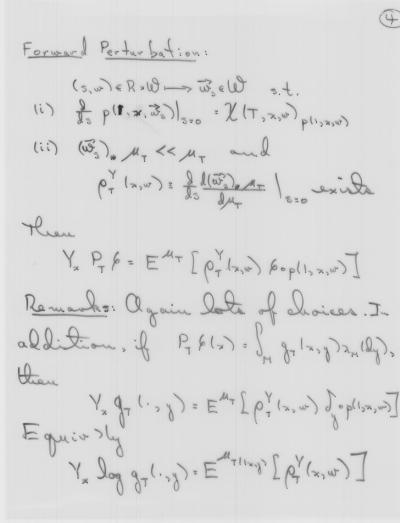 4
Forward Perturbation:
(s,w) ∈ R × W ⟼ w⃗_s ∈ W s.t.
(i) d/ds p(1,x,w⃗_s)|_{s=0} = X(T,x,w)_{p(1,x,w)}
(ii) (w⃗_s)_* μ_T << μ_T and
ρ_T^Y(x,w) ≡ d/ds d(w⃗_s)_* μ_T / dμ_T |_{s=0} exists
Then
Y_x P_T φ = E^{μ_T} [ρ_T^Y(x,w) φ∘p(1,x,w)]
Remarks: Again lots of choices. In
addition, if P_T φ(x) = ∫_M q_T(x,y) λ_M(dy),
then
Y_x q_T(·,y) = E^{μ_T} [ρ_T^Y(x,w) δ_y∘p(1,x,w)]
Equiv'ly
Y_x log q_T(·,y) = E^{μ_T(1,x,y)} [ρ_T^Y(x,w)]